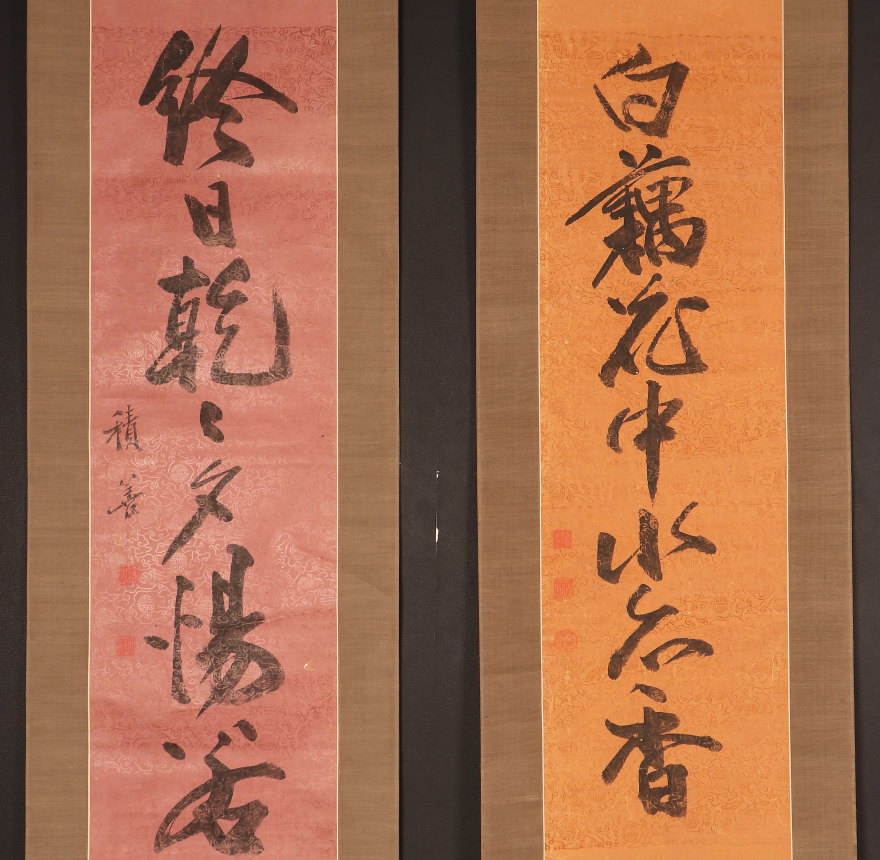 白藕花中水亦香
終日乾〻夕惕若
積善